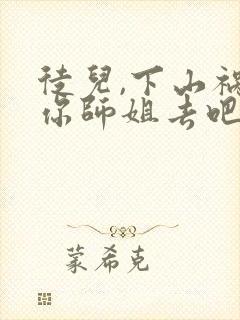 徒兒,下山禍
你師姐去吧
蒙希克